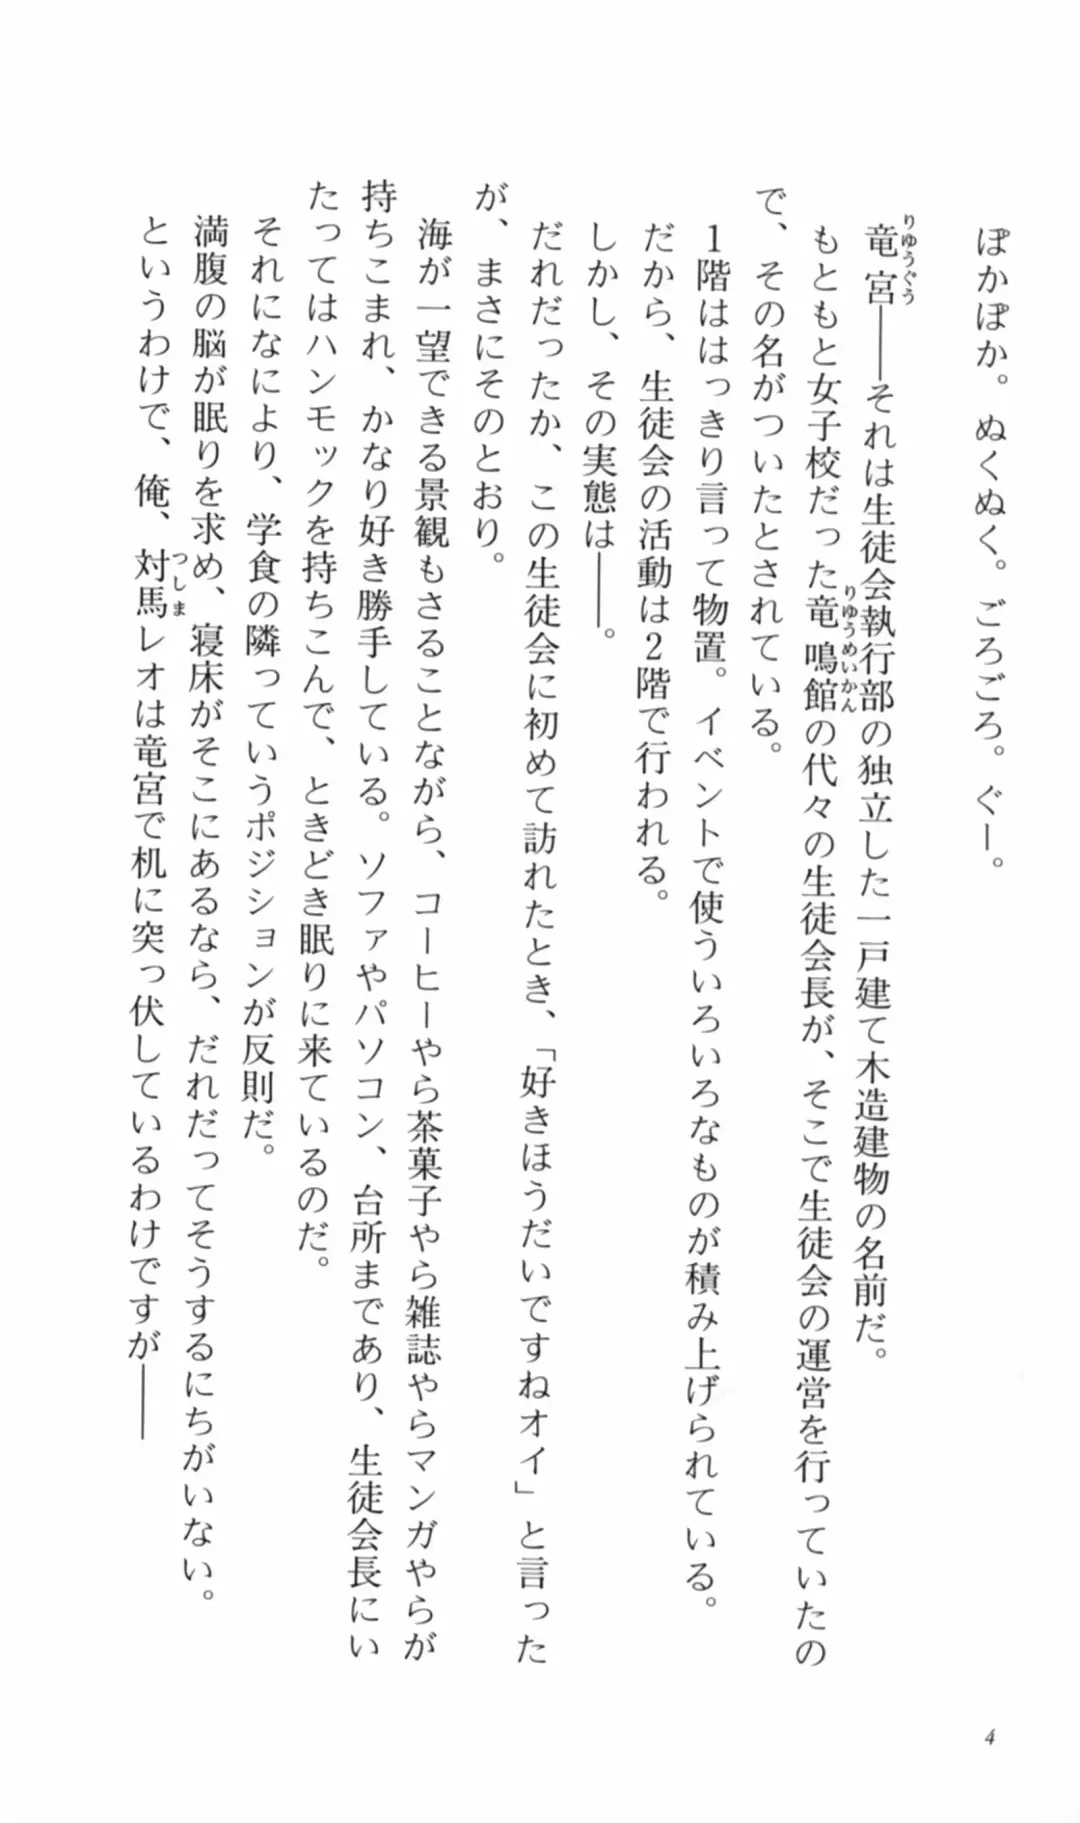 ぽかぽか。ぬくぬく。ごろごろ。ぐー。
竜宮――それは生徒会執行部の独立した一戸建て木造建物の名前だ。
りゅうぐう
もともと女子校だった竜鳴館の代々の生徒会長が、そこで生徒会の運営を行っていたの
りゅうめいかん
で、その名がついたとされている。
1階ははっきり言って物置。イベントで使ういろいろなものが積み上げられている。
だから、生徒会の活動は2階で行われる。
しかし、その実態は――。
だれだったか、この生徒会に初めて訪れたとき、「好きほうだいですねオイ」と言った
が、まさにそのとおり。
海が一望できる景観もさることながら、コーヒーやら茶菓子やら雑誌やらマンガやらが
持ちこまれ、かなり好き勝手している。ソファやパソコン、台所まであり、生徒会長にい
たってはハンモックを持ちこんで、ときどき眠りに来ているのだ。
それになにより、学食の隣っていうポジションが反則だ。
満腹の脳が眠りを求め、寝床がそこにあるなら、だれだってそうするにちがいない。
というわけで、俺、対馬レオは竜宮で机に突っ伏しているわけですが――
つしま
4